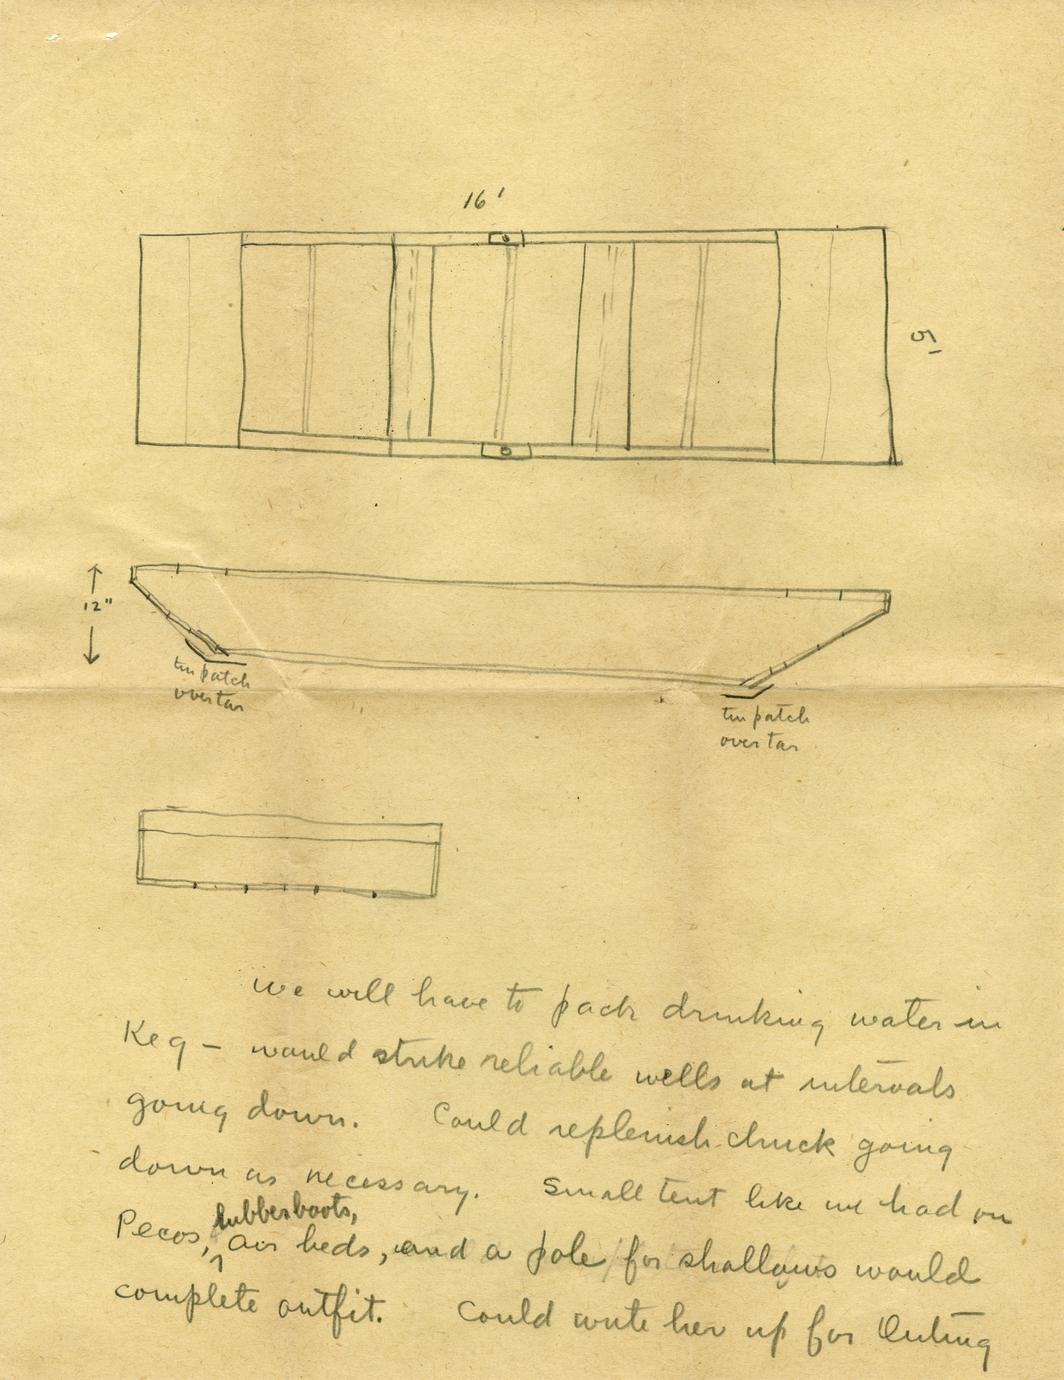 16'
5'
12"
tin patch
over tar
tin patch
over tar
we will have to pack drinking water in
Keg – would strike reliable wells at intervals
going down. Could replenish chuck going
down as necessary. Small tent like we had on
rubber boots,
Pecos, air beds, and a pole for shallows would
complete outfit. Could write her up for Outing